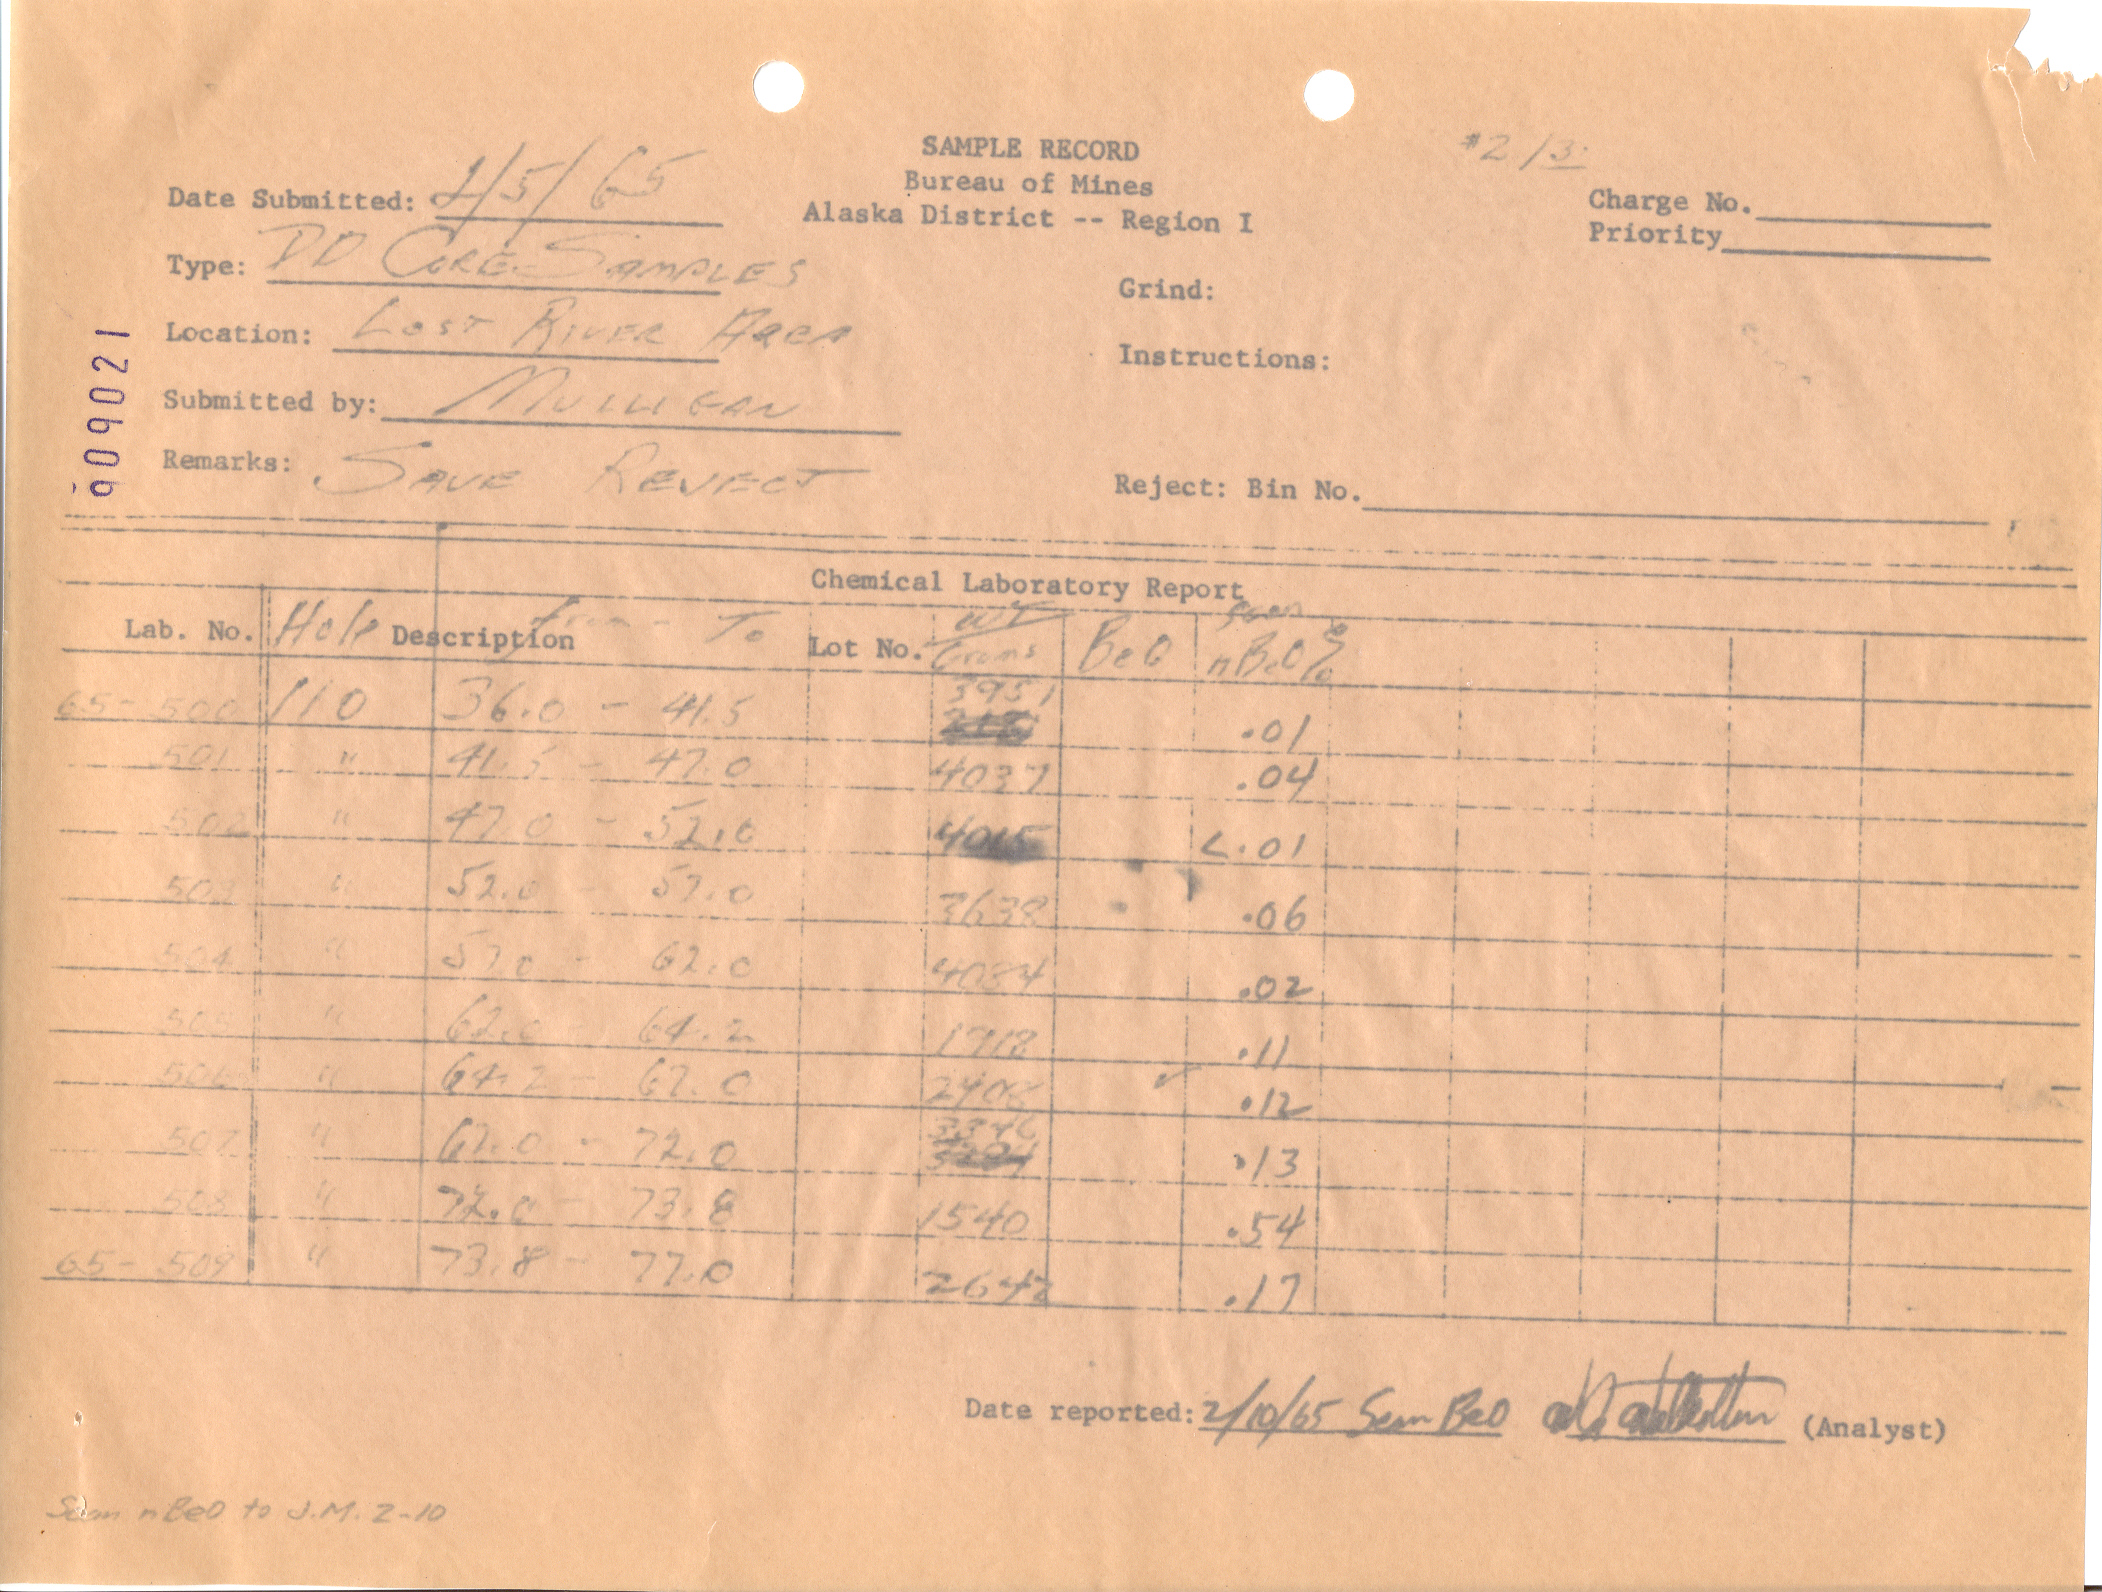 SAMPLE RECORD
Bureau of Mines
Alaska District -- Region I
Date Submitted: 2/5/65
Type: DD CORE SAMPLES
Location: LOST RIVER AREA
Submitted by: MULLIGAN
Remarks: SAVE REJECT
#2/3
Charge No.
Priority
Grind:
Instructions:
Reject: Bin No.
609021
Chemical Laboratory Report
Lab. No. Hole Description From - To Lot No. WT Grams BeO Scan nBeO %
65- 500 110 36.0 - 41.5 3951 .01
501 " 41.5 - 47.0 4037 .04
502 " 47.0 - 52.0 4015 <.01
503 " 52.0 - 57.0 3638 .06
504 " 57.0 - 62.0 4084 .02
505 " 62.0 - 64.2 1918 .11
506 " 64.2 - 67.0 2408 ✓ .12
507 " 67.0 - 72.0 .13
508 " 72.0 - 73.8 1540 .54
65- 509 " 73.8 - 77.0 2642 .17
Date reported: 2/10/65 Scan BeO (Analyst)
Scan nBeO to J.M. 2-10